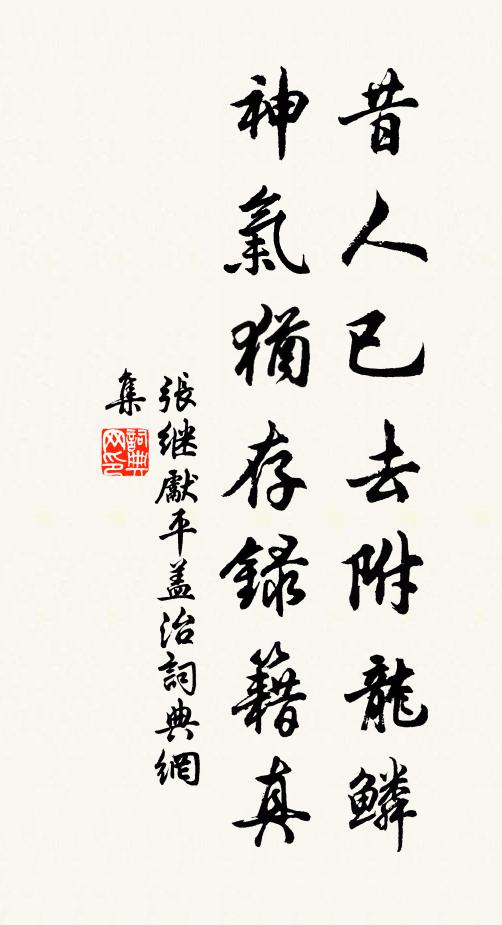 昔人已去附龍鱗
神氣猶存録籍真
張継獻平蓋治詞典網
集
詞典网印